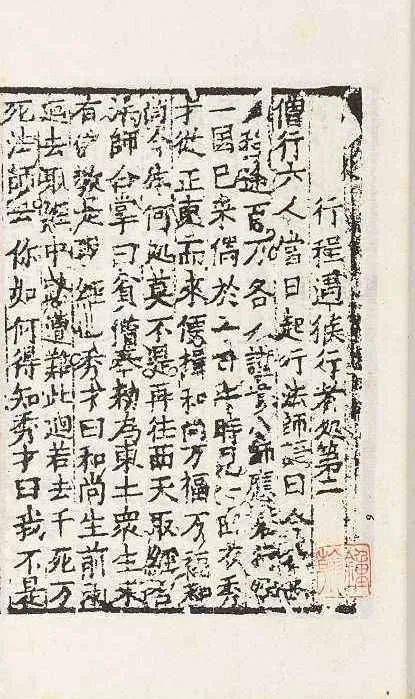 行程遇猴行者処第二
僧行六人當日起行法師語曰今
程途百万各人謹慎小師應諾行經
一國已來偶於一日午時見一白衣秀
才從正東而來便揖和尚万福万福和
尚今往何処莫不是再往西天取經否
法師合掌曰貧僧奉勑為東土衆生未
有佛教是取經也秀才曰和尚生前兩
迴去取經中路遭難此迴若去千死万
死法師云你如何得知秀才曰我不是